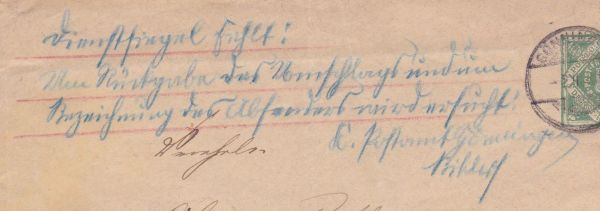 Dienstsiegel fehlt!
Um Rückgabe des Umschlags und um
Bezeichnung des Absenders wird ersucht!
K. Postamt Gömaringen